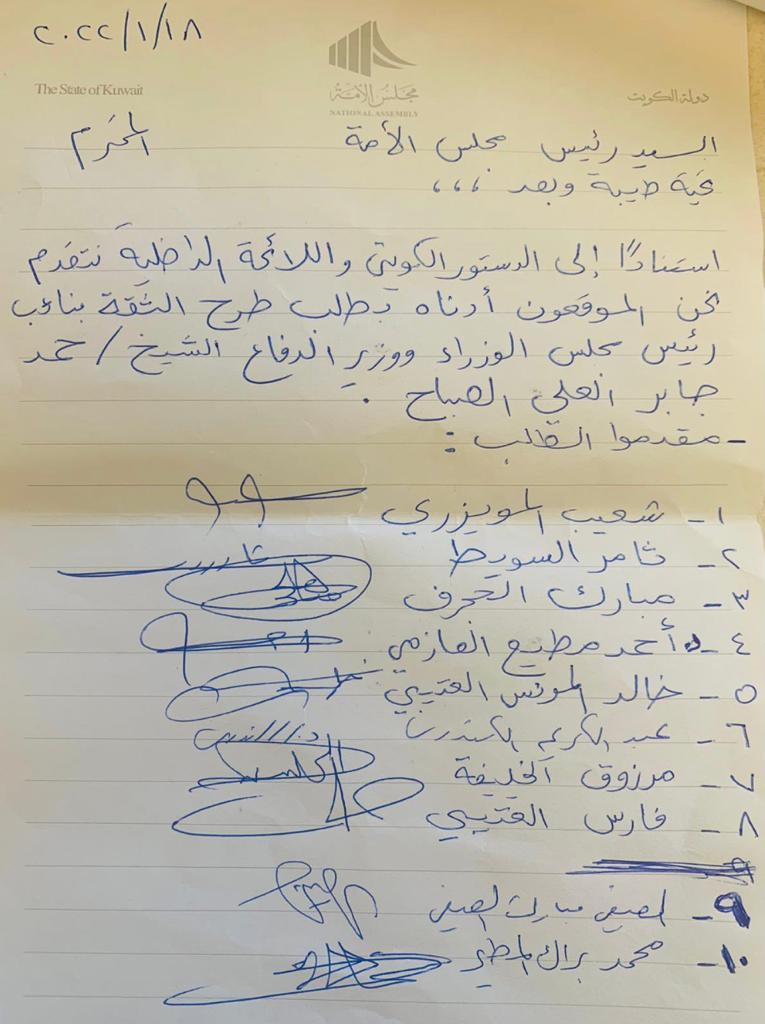 ٢٠٢٢/١/١٨
The State of Kuwait
مجلس الأمة
NATIONAL ASSEMBLY
دولة الكويت
السيد رئيس مجلس الأمة المحترم
تحية طيبة وبعد ،،،
استنادًا إلى الدستور الكويتي واللائحة الداخلية نتقدم
نحن الموقعون أدناه بطلب طرح الثقة بنائب
رئيس مجلس الوزراء ووزير الدفاع الشيخ / حمد
جابر العلي الصباح .
- مقدموا الطلب :
١- شعيب المويزري
٢- ثامر السويط
٣- مبارك الحجرف
٤- د. أحمد مطيع العازمي
٥- خالد المونس العتيبي
٦- عبد الكريم الكندري
٧- مرزوق الخليفة
٨- فارس العتيبي
٩
٩- الصيفي مبارك الصيفي
١٠- محمد براك المطير